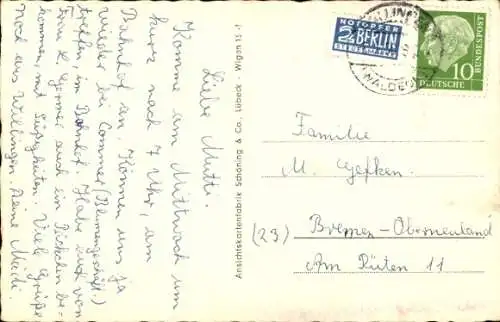 Liebe Mutti.
Komme am Mittwoch um
kurz nach 7 Uhr, am
Bahnhof an. Können uns ja
wieder bei Commer (Blumengeschäft.)
treffen, im Bahnhof. Habe auch von
Frau K. Germer auch ein Päckchen be-
kommen, mit Süßigkeiten. Viele Grüße
noch aus Willingen. Deine Mädi.
Ansichtskartenfabrik Schöning & Co., Lübeck
Wigen 15
NOTOPFER
2 BERLIN
STEUERMARKE
WILLINGEN
(WALDECK)
10
DEUTSCHE
BUNDESPOST
Familie
M. Gefken.
(23) Bremen-Oberneuland
Am Rüten 11